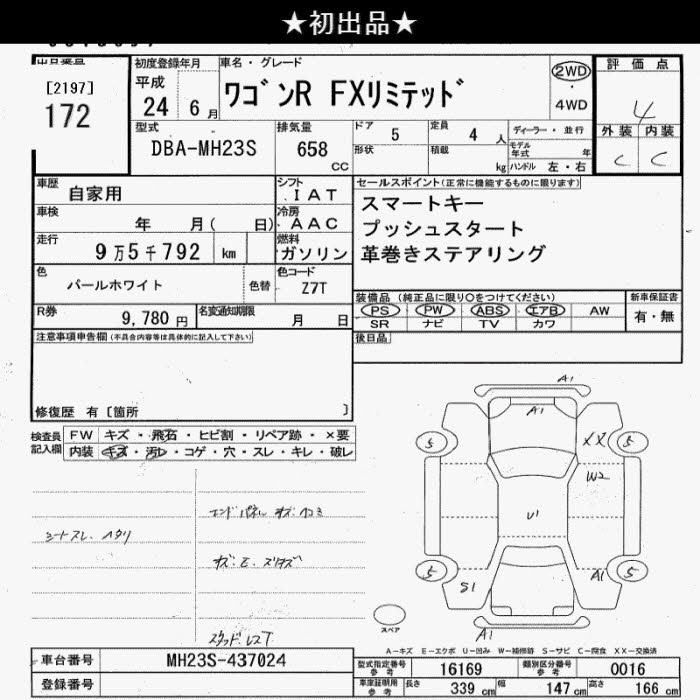 ★初出品★
出品番号
[2197]
172
初度登録年月
平成
24 6 月
車名・グレード
ワゴンR FXリミテッド
2WD
・
4WD
評価点
4
外装 内装
C C
型式
DBA-MH23S
排気量
658 CC
ドア 5
定員 4 人
形状
積載 kg
ディーラー・並行
モデル年式 年
ハンドル 左・右
車歴 自家用
シフト IAT
車検 年 月( 日)
冷房 AAC
走行 9万5千792 km
燃料 ガソリン
色 パールホワイト
色替
色コード Z7T
R券 9,780 円
名変通知期限 月 日
セールスポイント(正常に機能するものに限ります)
スマートキー
プッシュスタート
革巻きステアリング
装備品 (純正品に限り○をつけてください)
新車保証書
PS PW ABS エアB AW
有・無
SR ナビ TV カワ
後日品
注意事項申告欄(不具合内容等は具体的に記入して下さい)
修復歴 有〔箇所 〕
検査員記入欄
FW キズ・飛石・ヒビ割・リペア跡・×要
内装 キズ・汚レ・コゲ・穴・スレ・キレ・破レ
シートスレ. ヘタリ
エンドパネル キズ.凹ミ
A1
A1
XX
W2
U1
S1
A1
A1
5
5
5
5
スペア
A−キズ E−エクボ U−凹み W−補修跡 S−サビ C−腐食 XX−交換済
車台番号 MH23S-437024
登録番号
型式指定番号 参考 16169
類別区分番号 参考 0016
車庫証明用 参考 長さ 339 cm 幅 147 cm 高さ 166 cm